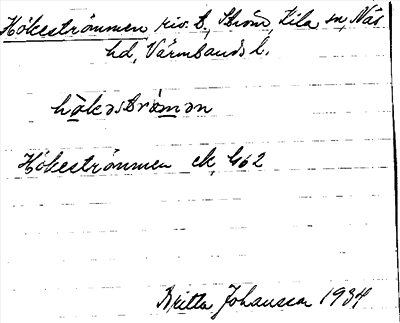 Hökeströmmen riv. t., Ström, Kila sn, Näs
hd, Värmlands l.
hökəströmən
Hökeströmmen ek, 662
Britta Johansson 1934